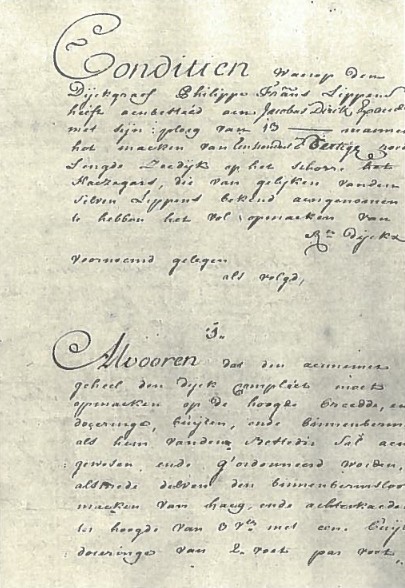 Conditien Waerop den
Dijckgraef Philippe Frans Lippens
heeft aenbesteed aen Jacobus Dirik
met sijn ploeg van 13 mannen
het maecken van Een hondert Dertigh roe
Lengde Zeedijk op het schorre het
Haezegars, die van gelijken vanden
selven Lippens bekend aengenomen
te hebben het vol opmaeken van
Dijcks
voornoemd gelegen
als volgd,
1.
Alvooren dat den aennemer
geheel den Dijck Compleet moet
opmaeken op de hoogde breedde, en
doceringe, buijten, ende binnenberm
als hem vanden Besteder sal aen
gewesen ende g'ordonneerd worden,
alsmede delven den binnenbermsloo
maeken van haeg, ende achterkaede
ter hoogde van 3 met een buijt
doceringe van 2 voet par voet